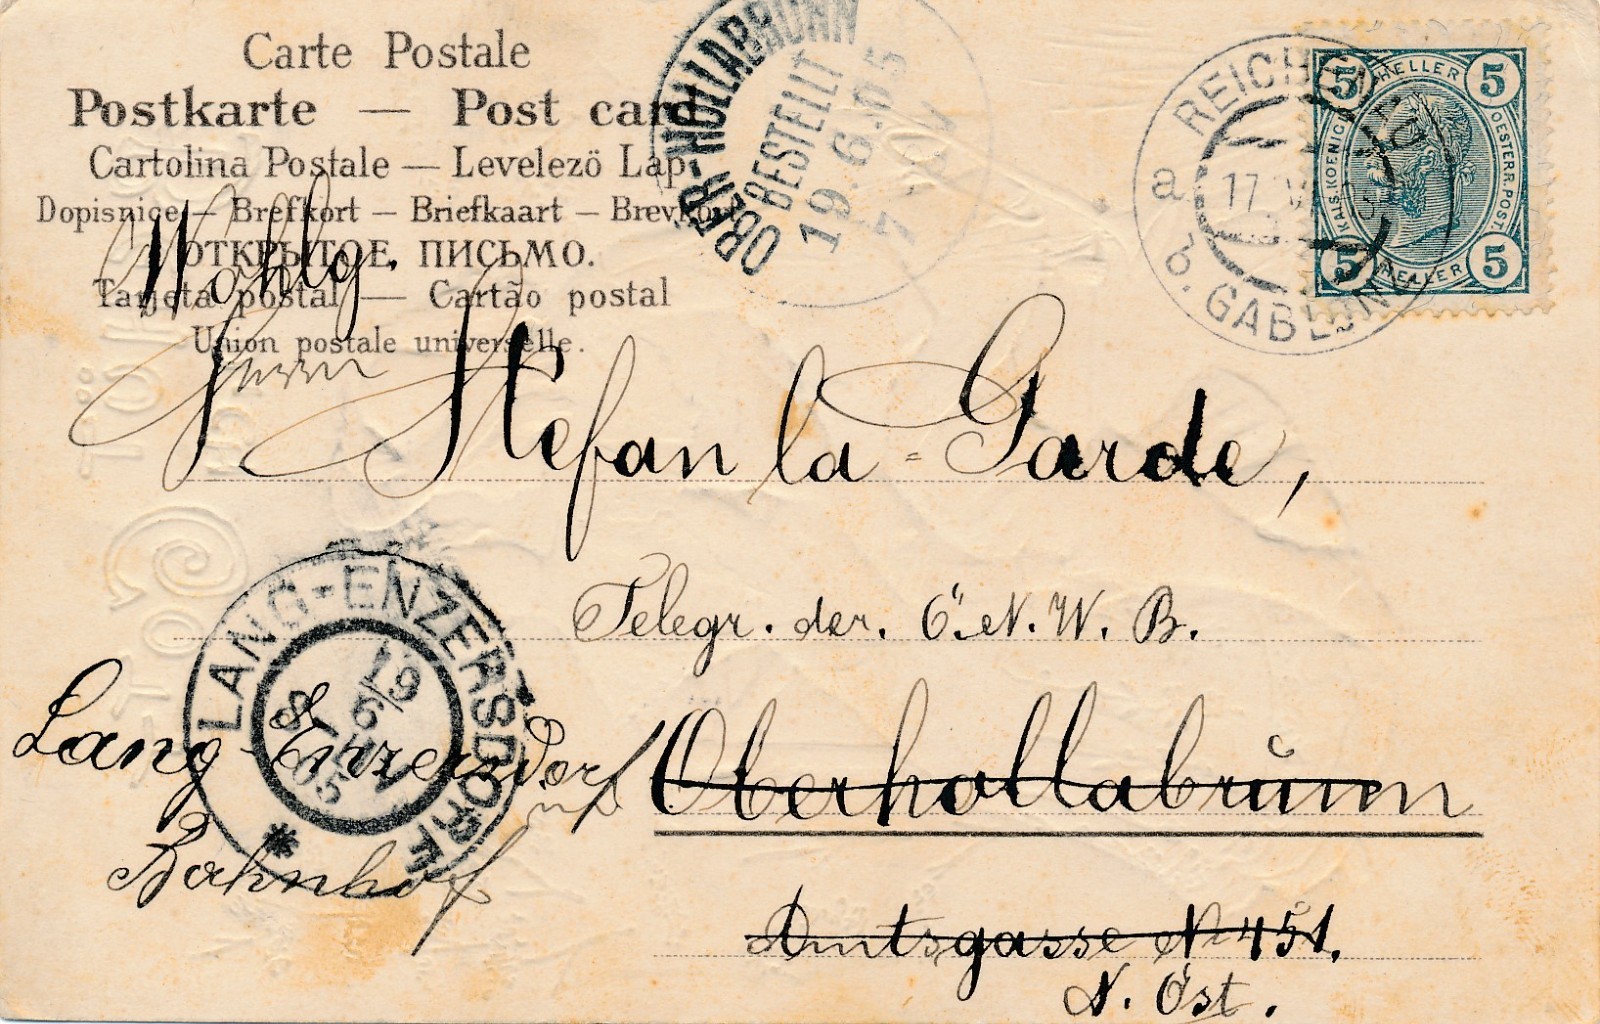 Carte Postale
Postkarte — Post card
Cartolina Postale — Levelezö Lap
Dopisnice — Brefkort — Briefkaart — Brevkort
ОТКРЫТОЕ ПИСЬМО.
Tarjeta postal — Cartão postal
Union postale universelle.
OBER-HOLLABRUNN
BESTELLT
19.6.05
7
REICHENAU
a
17
b. GABLONZ
5 HELLER 5
KAIS. KOENIGL.
OESTERR. POST.
5 HELLER 5
Wohlg.
Herrn
Stefan la-Garde,
Telegr. der. Ö. N. W. B.
LANG-ENZERSDORF
19
6
05
Lang-Enzersdorf
Bahnhof
Oberhollabrunn
Amtsgasse No 451.
N. Öst.